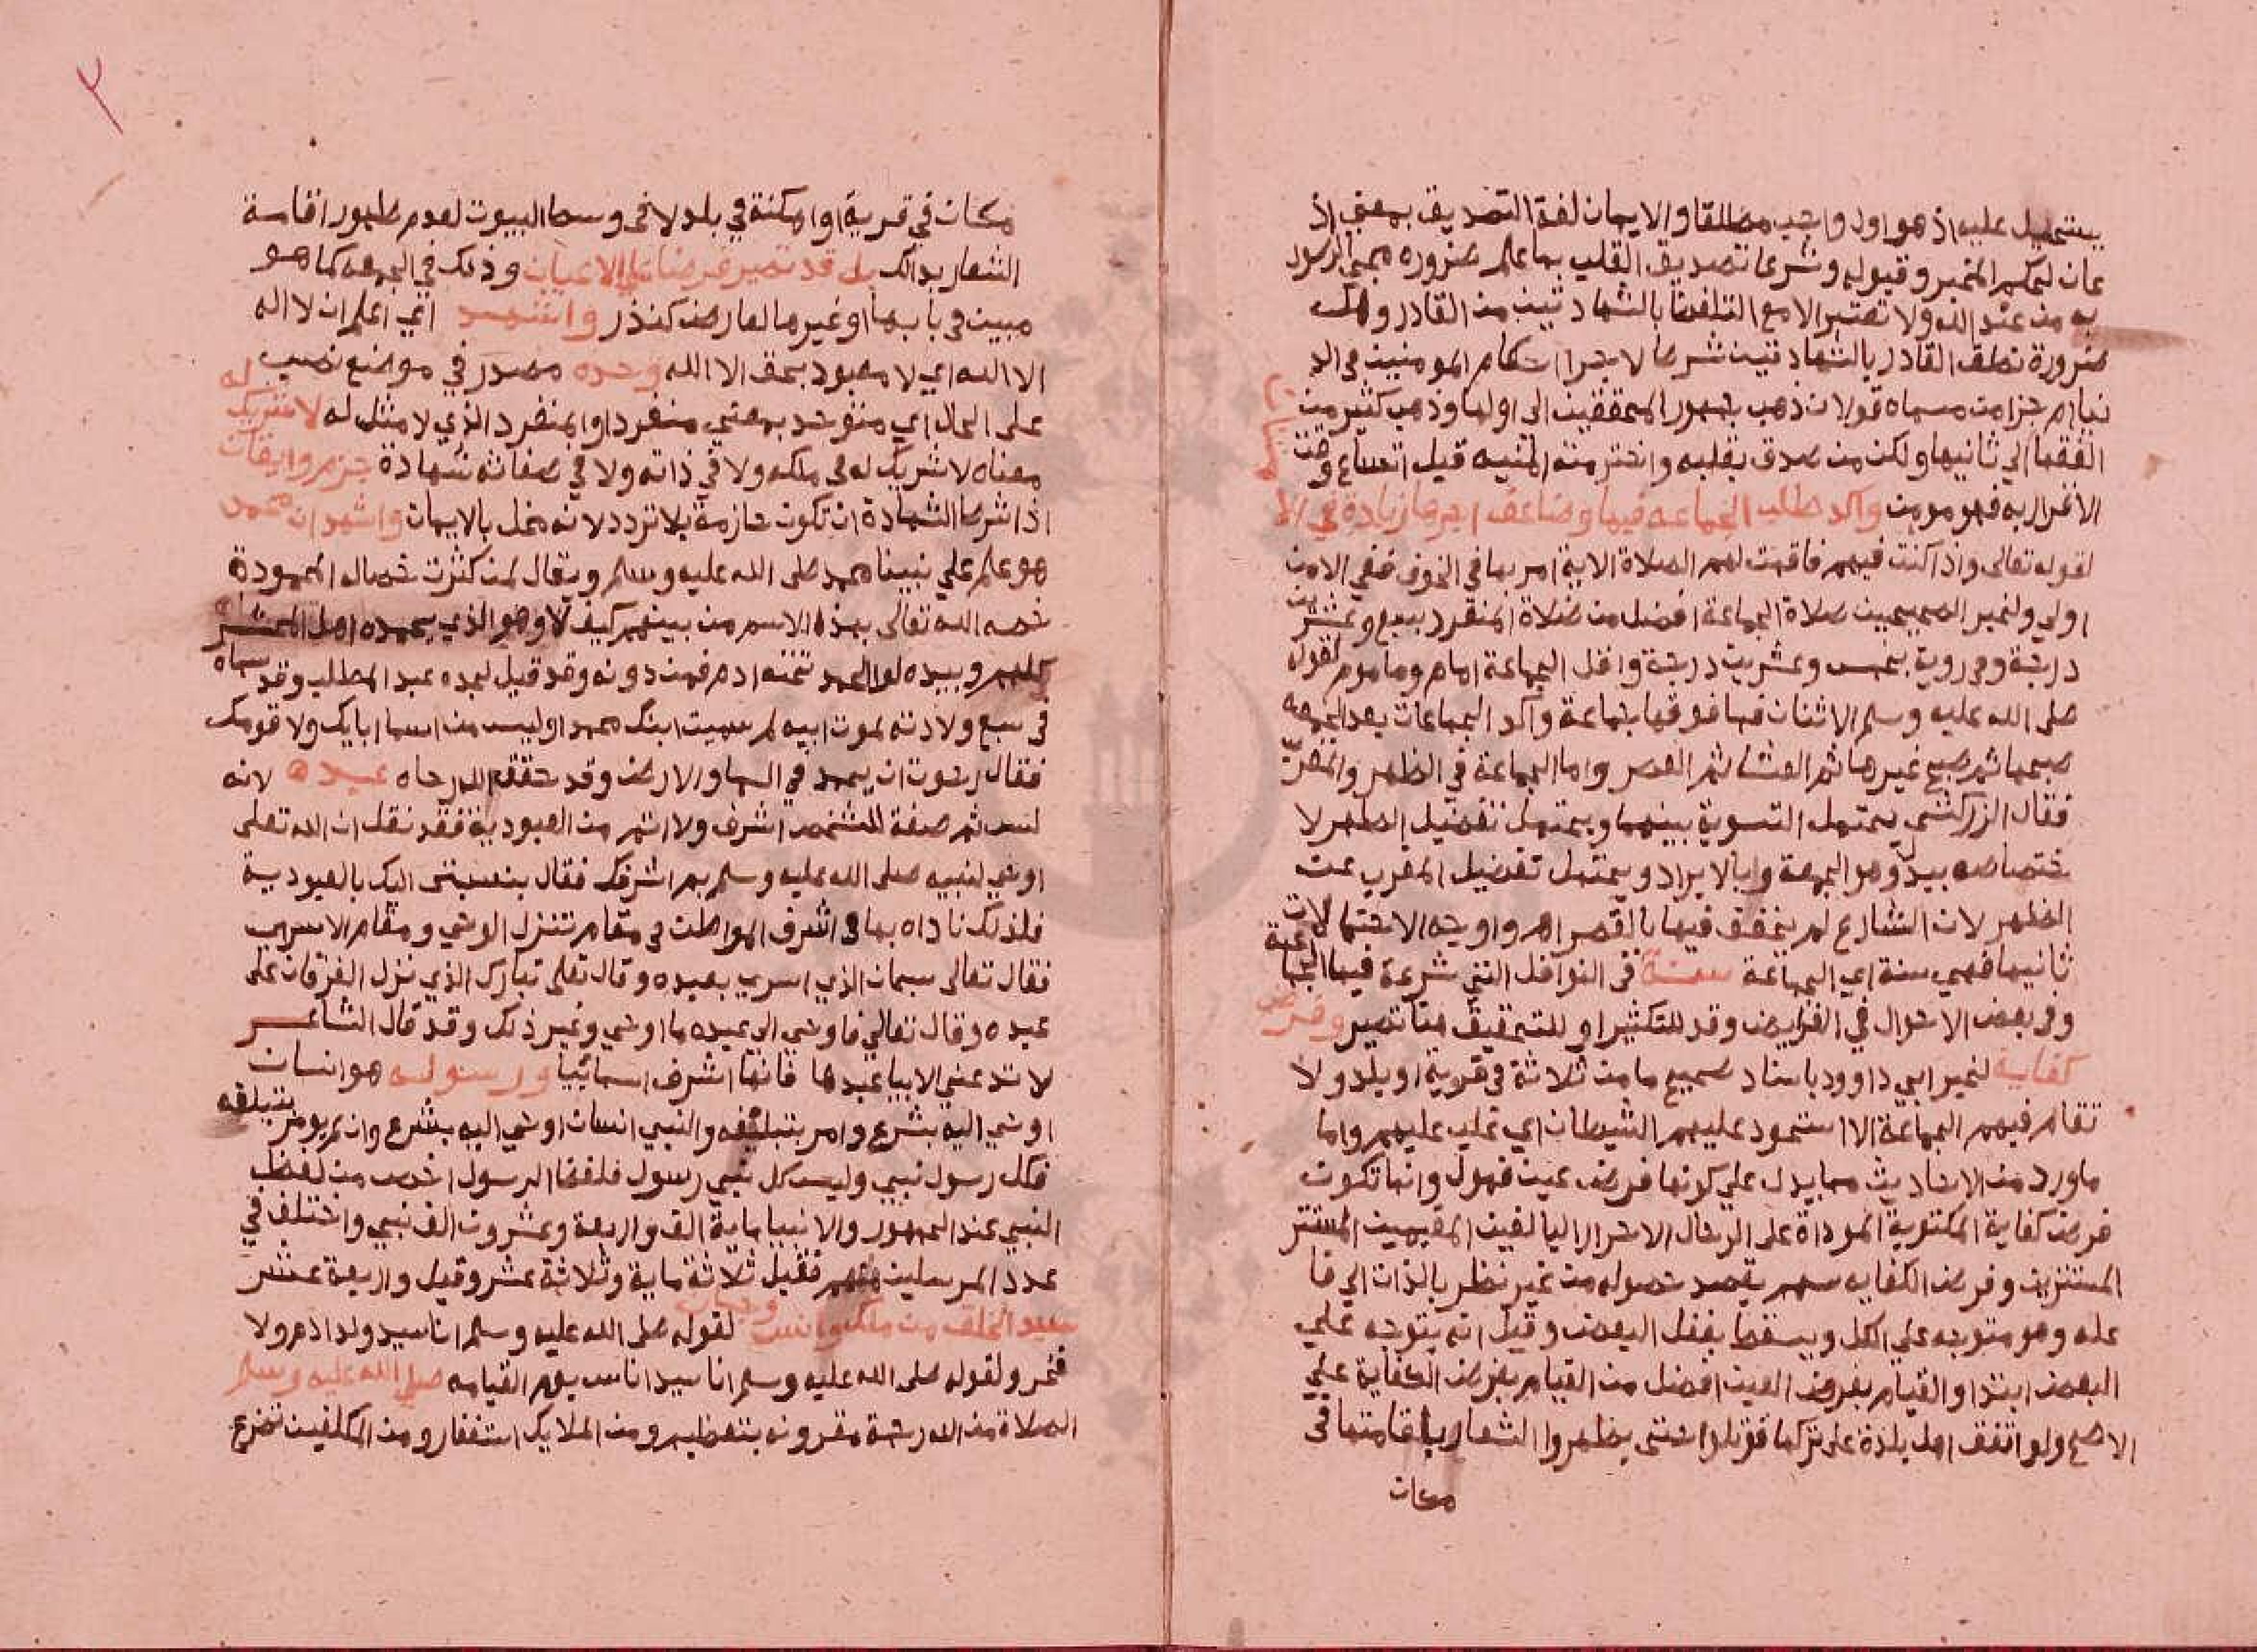 يستحيل عليه اذ هو اول واجب مطلقا والايمان لغة التصديق بمعني اذ
عان لحكم المخبر وقبوله وشرعا تصديق القلب بما علم ضروره مجي الرسول
به من عند الله ولا تعتبر الا مع التلفظ بالشهادتين من القادر وهل
ضرورة نطق القادر بالشهادتين شرط لاجرا احكام المومنين في الد
نيا ام جزا من مسماه قولان ذهب جمهور المحققين الى اولها وذهب كثير من
الفقها الي ثانيها ولكن من صدق بقلبه واخترمته المنيه قبل اتساع وقت
الاقرار به فهو مومن واكد طلب الجماعه فيها وضاعف اجرها زيادة في الا
لقوله تعالى واذا كنت فيهم فاقمت لهم الصلاة الاية امر بها في الخوف ففي الامن
اولي ولخبر الصحيحين صلاة الجماعة افضل من صلاة المنفرد بسبع وعشرين
درجة وفي روية بخمس وعشرين درجة واقل الجماعة امام وماموم لقوله
صلى الله عليه وسلم الاثنان فما فوقها جماعة واكد الجماعات بعد الجمعه
صبحها ثم صبح غيرها ثم العشا ثم العصر واما الجماعة في الظهر والمغرب
فقال الزركشي يحتمل التسوية بينهما ويحتمل تفضيل الظهر لا
ختصاصه ببدل وهو الجمعة وبالايراد ويحتمل تفضيل المغرب عن
الظهر لان الشارع لم يخفف فيها بالقصر اهـ واوجه الاحتمالات
ثانيها فهي سنة اي الجماعة سنة في النوافل التي شرعة فيها الجماعة
وفي بعض الاحوال في الفرايض وقد للتكثير او للتحقيق هنا تصير وفرض
كفاية لخبر ابي داوود باسناد صحيح ما من ثلاثة في قرية او بلد ولا
تقام فيهم الجماعة الا استحود عليهم الشيطان اي غلب عليهم واما
ماورد من الاحاديث مما يدل علي كونها فرض عين فهول وانما تكون
فرض كفاية المكتوبة الموداة على الرجال الاحرار البالغين المقيمين المستتر
المستترين وفرض الكفايه مهم يقصد حصوله من غير نظر بالذات الي فا
عله وهو متوجه علي الكل ويسقط بفعل البعض وقيل انه يتوجه علي
البعض ابتدا والقيام بفرض العين افضل من القيام بفرض الكفاية علي
الاصح ولو اتفق اهل بلدة على تركها قوتلوا حتى يظهروا الشعار باقامتها في
مكان
مكان في قرية او امكنة في بلد لا في وسط البيوت لعدم ظهور اقامة
الشعار بدالك بل قد تصير فرضا على الاعيان وذلك في الجمعه كما هو
مبين في بابها او غيرها لعارض كنذر واشهد اي اعلم ان لا اله
الا الله اي لا معبود بحق الا الله وحده مصدر في موضع نصب
على الحال اي متوحد بمعني منفردا والمنفرد الذي لا مثل له لا شريك له
معناه لا شريك له في ملكه ولا في ذاته ولا في صفاته شهادة جزم وايقان
اذا شرط الشهادة ان تكون جازمة بلا تردد لانه مخل بالايمان واشهد ان محمد
هو علم علي نبينا محمد صلى الله عليه وسلم ويقال لمن كثرت خصاله المحمودة
خصه الله تعالى بهذا الاسم من بينهم كيف لا وهو الذي يحمده اهل المحشر
كلهم وبيده لوا الحمد تحته ادم فمن دونه وقد قيل لجده عبد المطلب وقد سماه
في سبع ولادته لموت ابيه لم سميت ابنك محمد اوليس من اسما ابايك ولا قومك
فقال رجوت ان يحمد في السما والارض وقد حقق الله رجاه عبده لانه
ليس ثم صفة للشخص اشرف ولا اتم من العبودية فقد نقل ان الله تعلى
اوحي لنبيه صلى الله عليه وسلم بم اشرفك فقال بنسبتي اليك بالعبودية
فلذلك ناداه بها في اشرف المواطن في مقام تنزل الوحي ومقام الاسري
فقال تعالى سبحان الذي اسري بعبده وقال تعلى تبارك الذي نزل الفرقان على
عبده وقال تعالي فاوحي الى عبده ما اوحي وغير ذلك وقد قال الشاعر
لا تدعني الا بيا عبدها فانها اشرف اسمائيا ورسوله هو انسان
اوحي اليه بشرع وامر بتبليغه والنبي انسان اوحي اليه بشرع وان لم يومر بتبليغه
فكل رسول نبي وليس كل نبي رسول فلفظ الرسول اخص من لفظ
النبي عند الجمهور والانبيا ماية الف واربعة وعشرون الف نبي واختلف في
عدد المرسلين منهم فقيل ثلاثة ماية وثلاثة عشر وقيل واربعة عشر
سيد الخلق من ملك وانس وجان لقوله صلى الله عليه وسلم انا سيد ولد ادم ولا
فخر ولقوله صلى الله عليه وسلم انا سيد الناس يوم القيامه صلي الله عليه وسلم
الصلاة من الله رحمة مقرونه بتعظيم ومن الملايك استغفار ومن المكلفين تضرع